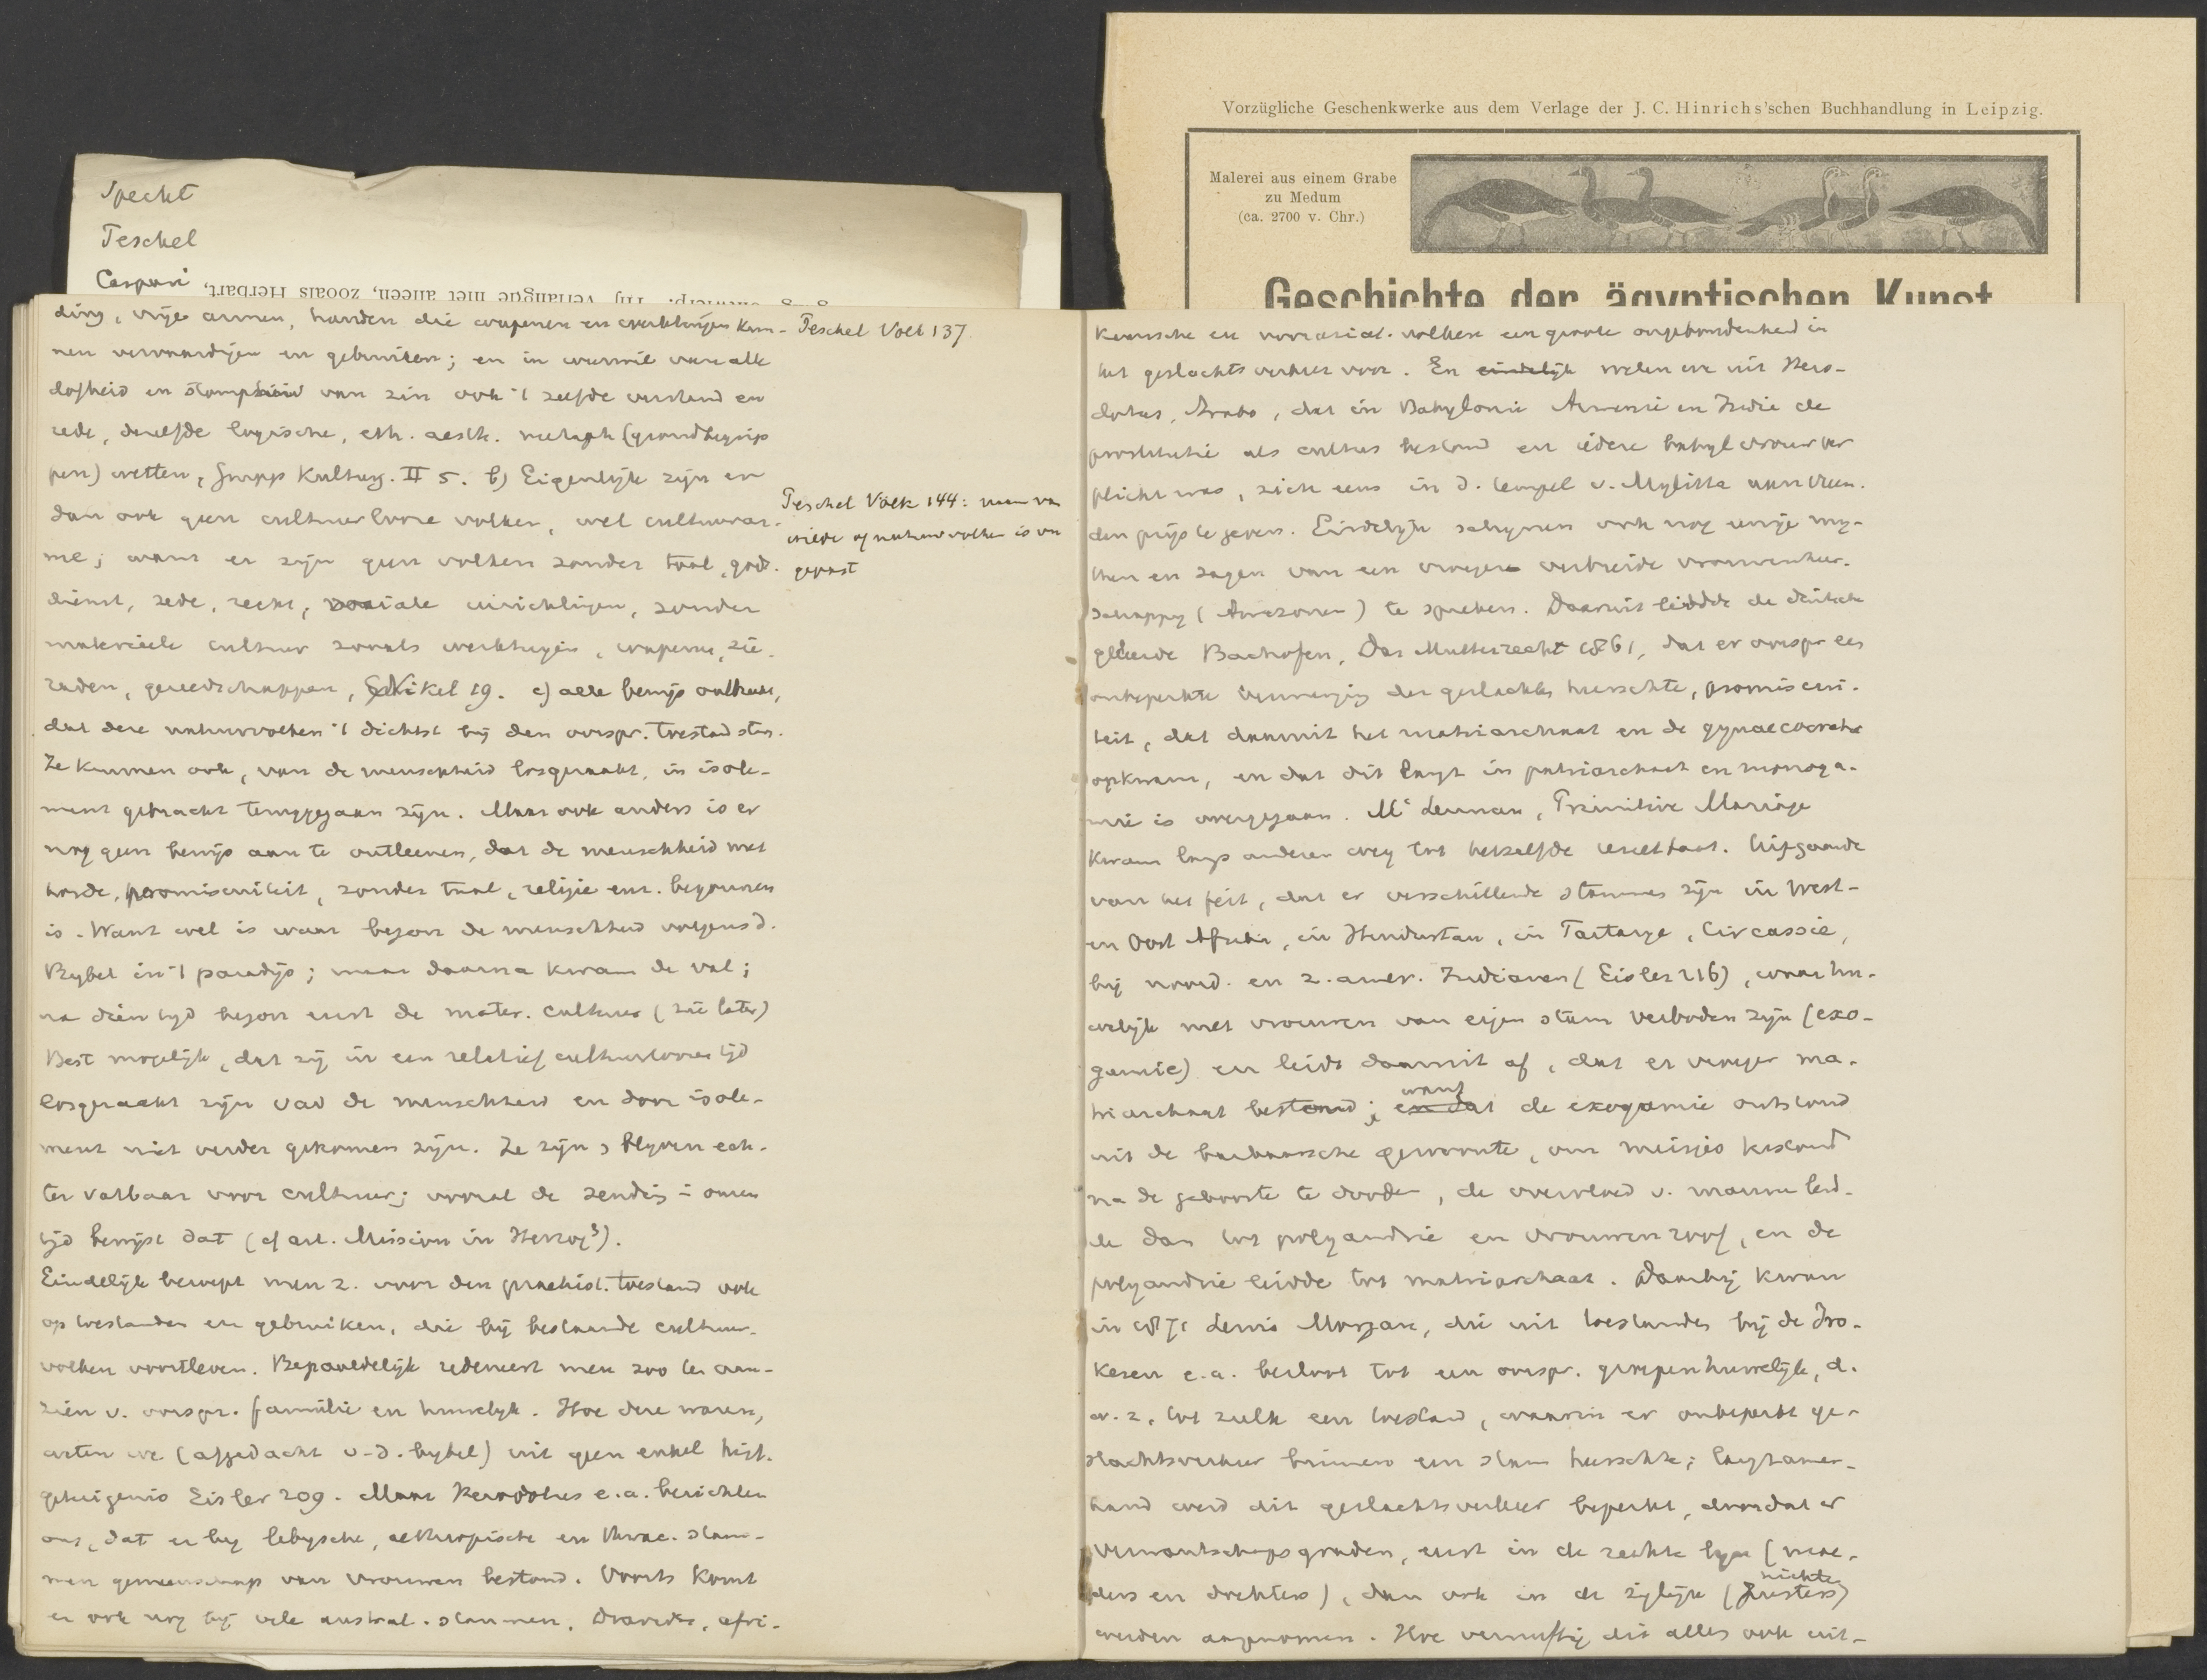 Specht
Peschel
Caspari
Vorzügliche Geschenkwerke aus dem Verlage der J. C. Hinrichs'schen Buchhandlung in Leipzig.
Malerei aus einem Grabe
zu Medum
(ca. 2700 v. Chr.)
Geschichte der ägyptischen Kunst
ding, vrije armen, handen die wapenen en werktuigen kun-
nen vervaardigen en gebruiken; en in weerwil van alle
dofheid en stompheid van zin ook 't zelfde verstand en
rede, dezelfde logische, eth. aesth. metaph (grondbegrip
pen) wetten, Grupp Kulturg. II 5. b) Eigenlijk zijn er
dan ook geen cultuurlooze volken, wel cultuurar-
me; want er zijn geen volken zonder taal, gods-
dienst, zede, recht, sociale inrichtingen, zonder
materieele cultuur zooals werktuigen, wapenen, sie-
raden, gereedschappen, 19. c) alle bewijs ontbreekt,
dat deze natuurvolken 't dichtst bij den oorspr. toestand staan.
Ze kunnen ook, van de menschheid losgeraakt, in isole-
ment gebracht teruggegaan zijn. Maar ook anders is er
nog geen bewijs aan te ontleenen, dat de menschheid met
horde, promiscuiteit, zonder taal, religie enz. begonnen
is. Want wel is waar begon de menschheid volgens d.
Bybel in 't paradijs; maar daarna kwam de val;
na dien tijd begon eerst de mater. cultuur (zie later)
Best mogelijk, dat zij in een relatief cultuurloozen tijd
losgeraakt zijn van de menschheid en door isole-
ment niet verder gekomen zijn. Ze zijn blyven ech-
ter vatbaar voor cultuur; vooral de zending i onzen
tijd bewijst dat (cf art. Mission in Herzog³).
Eindelijk beroept men z. voor den praehist. toestand ook
op toestanden en gebruiken, die bij bestaande cultuur-
volken voortleven. Bepaaldelijk redeneert men zoo ten aan-
zien v. oorspr. familie en huwelijk. Hoe deze waren,
weten we (afgedacht v. d. bybel) uit geen enkel hist.
getuigenis Eisler 209. Maar Herodotus e.a. berichten
ons, dat er bij lebysche, aethiopische en thrac. stam-
men gemeenschap van vrouwen bestond. Voorts komt
er ook nog bij vele austral. stammen, Dravida, afri-
Peschel Volk 137
Peschel Völk 144: naam van
wilde of natuurvolken is on
gepast
kaansche en noordasiat. volken een groote ongebondenheid in
het geslachtsverkeer voor. En eindelijk weten we uit Hero-
dotus, Strabo, dat in Babylonie Armenie en Indie de
prostitutie als cultus bestond en iedere babyl vrouw ver
plicht was, zich eens in d. tempel v. Mylitta aan vreem-
den prijs te geven. Eindelijk schijnen ook nog eenige my-
then en sagen van een vroegere verbreide vrouwenheer-
schappy (Amazonen) te spreken. Daaruit leidde de duitsche
geleerde Bachofen, Das Mutterrecht 1861, dat er oorspr een
onbeperkte vermenging der geslachten heerschte, promiscui-
teit, dat daaruit het matriarchaat en de gynaecocratie
opkwam, en dat dit langz in patriarchaat en monoga-
mie is overgegaan. Mc Lennan, Primitive Marriage
kwam langs anderen weg tot hetzelfde resultaat. Uitgaande
van het feit, dat er verschillende stammen zijn in West-
en Oost Afrika, in Hindustan, in Tartarye, Circassie,
bij noord. en z. amer. Indianen (Eisler 216), waar hu-
welijk met vrouwen van eigen stam verboden zijn (exo-
gamie) en leidt daaruit af, dat er vroeger ma-
triarchaat bestond; en dat want de exogamie ontstond
uit de barbaarsche gewoonte, om meisjes kestond
na de geboorte te dooden, de overvloed v. mannen leid-
de dan tot polyandrie en vrouwenroof, en de
polyandrie leidde tot matriarchaat. Daarbij kwam
in 1871 Lewis Morgan, die uit toestanden bij de Iro-
kezen e.a. besloot tot een oorspr. groepenhuwelijk, d.
w. z. tot zulk een toestand, waarin er onbeperkt ge-
slachtsverkeer binnen een stam heerschte; langzamer-
hand werd dit geslachtsverkeer beperkt, doordat er
verwantschapsgraden, eerst in de rechte lijn (moe-
ders en dochters), dan ook in de zijlijn (zusters) nichten
werden aangenomen. Hoe vernuftig dit alles ook uit-